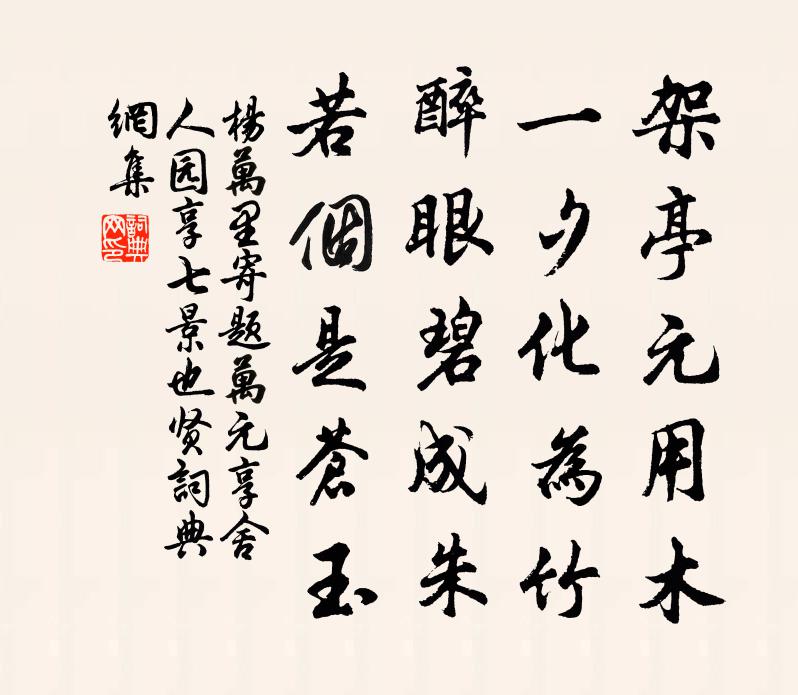 架亭元用木
一夕化為竹
醉眼碧成朱
若個是蒼玉
楊萬里寄题萬元享舍
人园享七景也贤詞典
網集
詞典網印